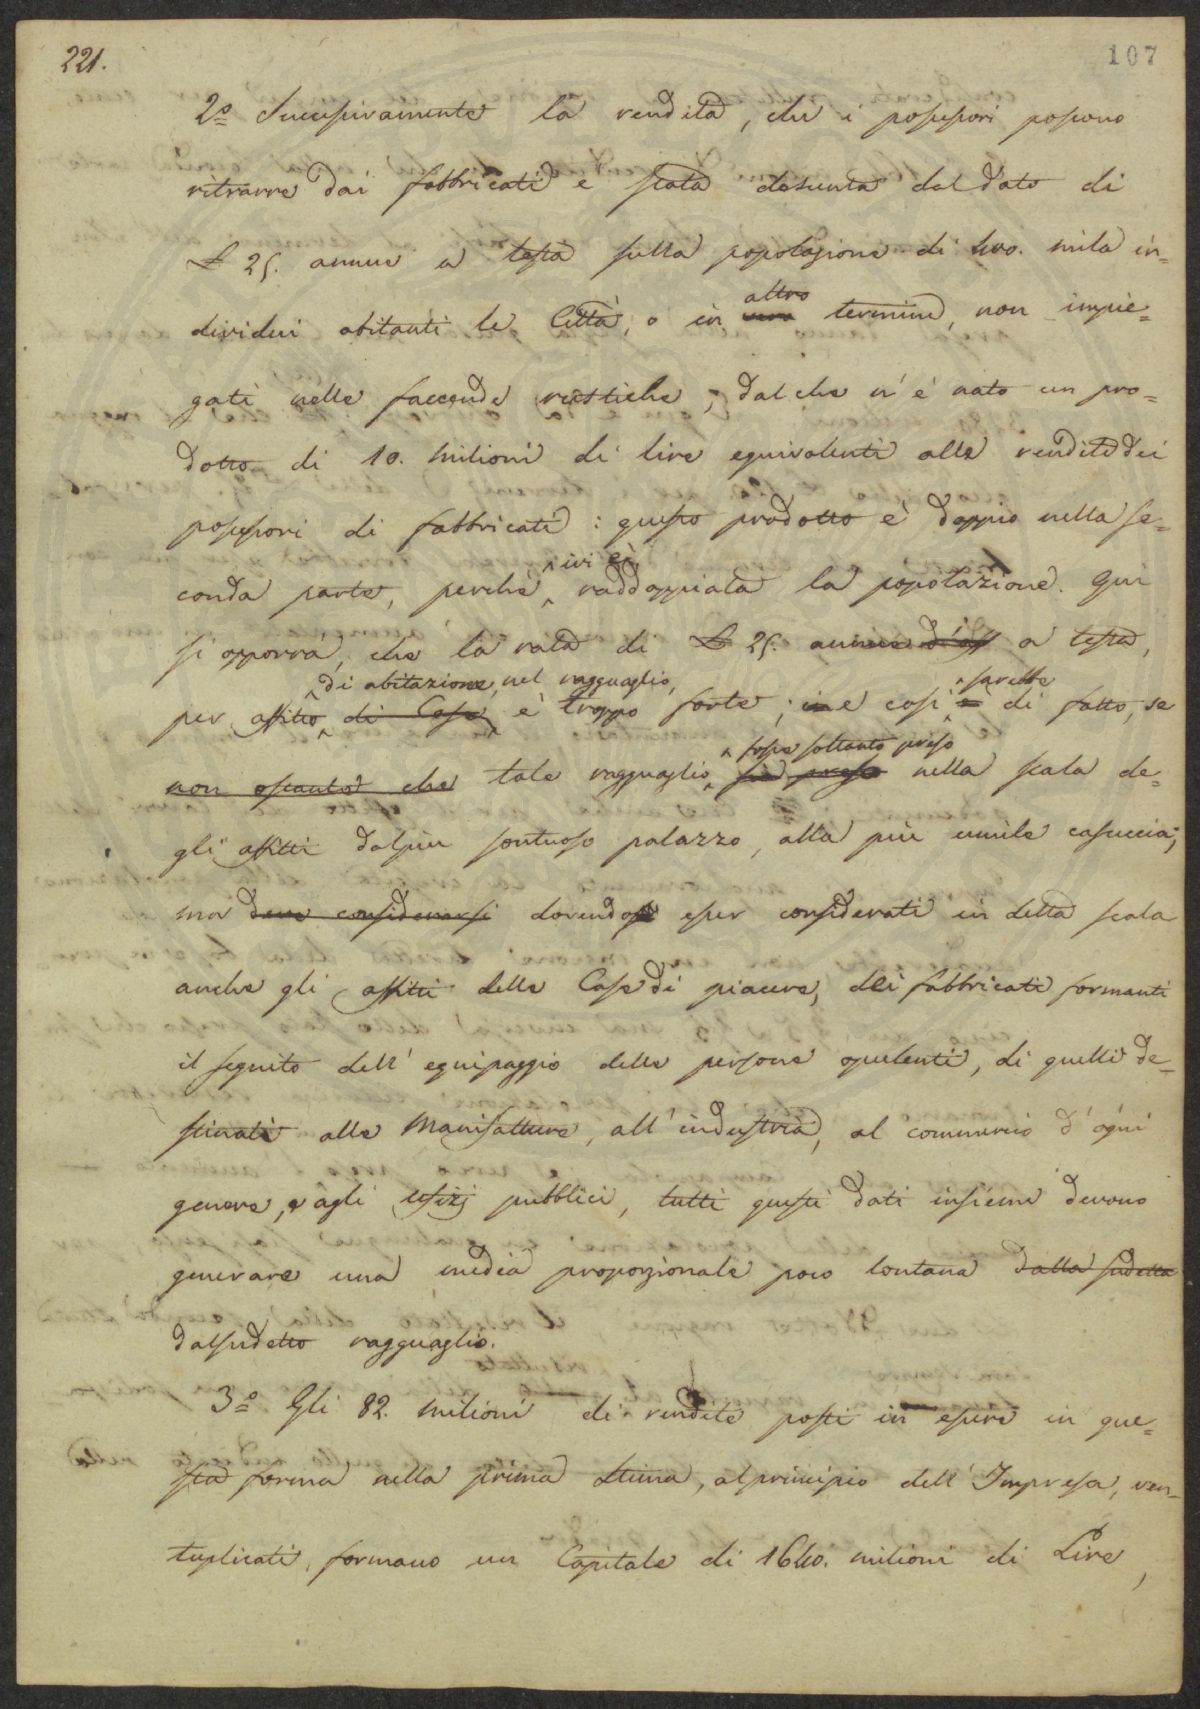 221.
107
2.º Successivamente la rendita, che i possessori possono
ritrarre dai fabbricati è stata desunta dal dato di
£ 25. annue a testa sulla popolazione di 400. mila in=
altro
dividui abitanti le Città, o in termine, non impie=
gati nelle faccende rustiche; dal che n'è nato un pro=
dotto di 10. milioni di lire equivalenti alle rendite dei
possessori di fabbricati: questo prodotto è doppio nella se=
ivi è
conda parte, perchè raddoppiata la popolazione. Qui
si opporrà, che la rata di £ 25. annue a testa,
di abitazione, nel ragguaglio, sarebbe
per affitto di Case è troppo forte; e così di fatto, se
fosse soltanto preso
non ostante che tale ragguaglio sia preso nella scala de=
gli affitti dal più sontuoso palazzo, alla più umile casuccia;
ma deve considerarsi dovendo esser considerati in detta scala
anche gli affitti delle Case di piacere, dei fabbricati formanti
il seguito dell'equipaggio delle persone opulenti, di quelli de=
stinati alle Manifatture, all'industria, al commercio d'ogni
genere, e agli Ufizj pubblici, tutti questi dati insieme devono
generare una media proporzionale poco lontana dalla sudetta
dal sudetto ragguaglio.
3.º Gli 82. milioni di rendite posti in essere in que=
sta forma nella prima stima, al principio dell'Impresa, ven=
tuplicati, formano un Capitale di 1640. milioni di Lire,